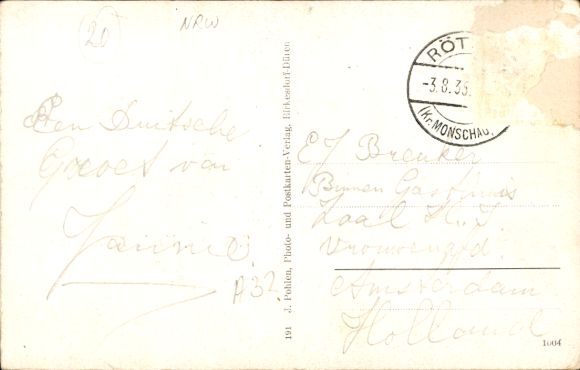 20
NRW
RÖT
-3.8.33.
(Kr. MONSCHAU)
Een Duitsche
Groet van
A32
191 J. Pohlen, Photo- und Postkarten-Verlag, Birkesdorf-Düren
E J Breuker
Binnen Gasthuis
Zaal H. J.
Vrouwen
Amsterdam
Holland
1004